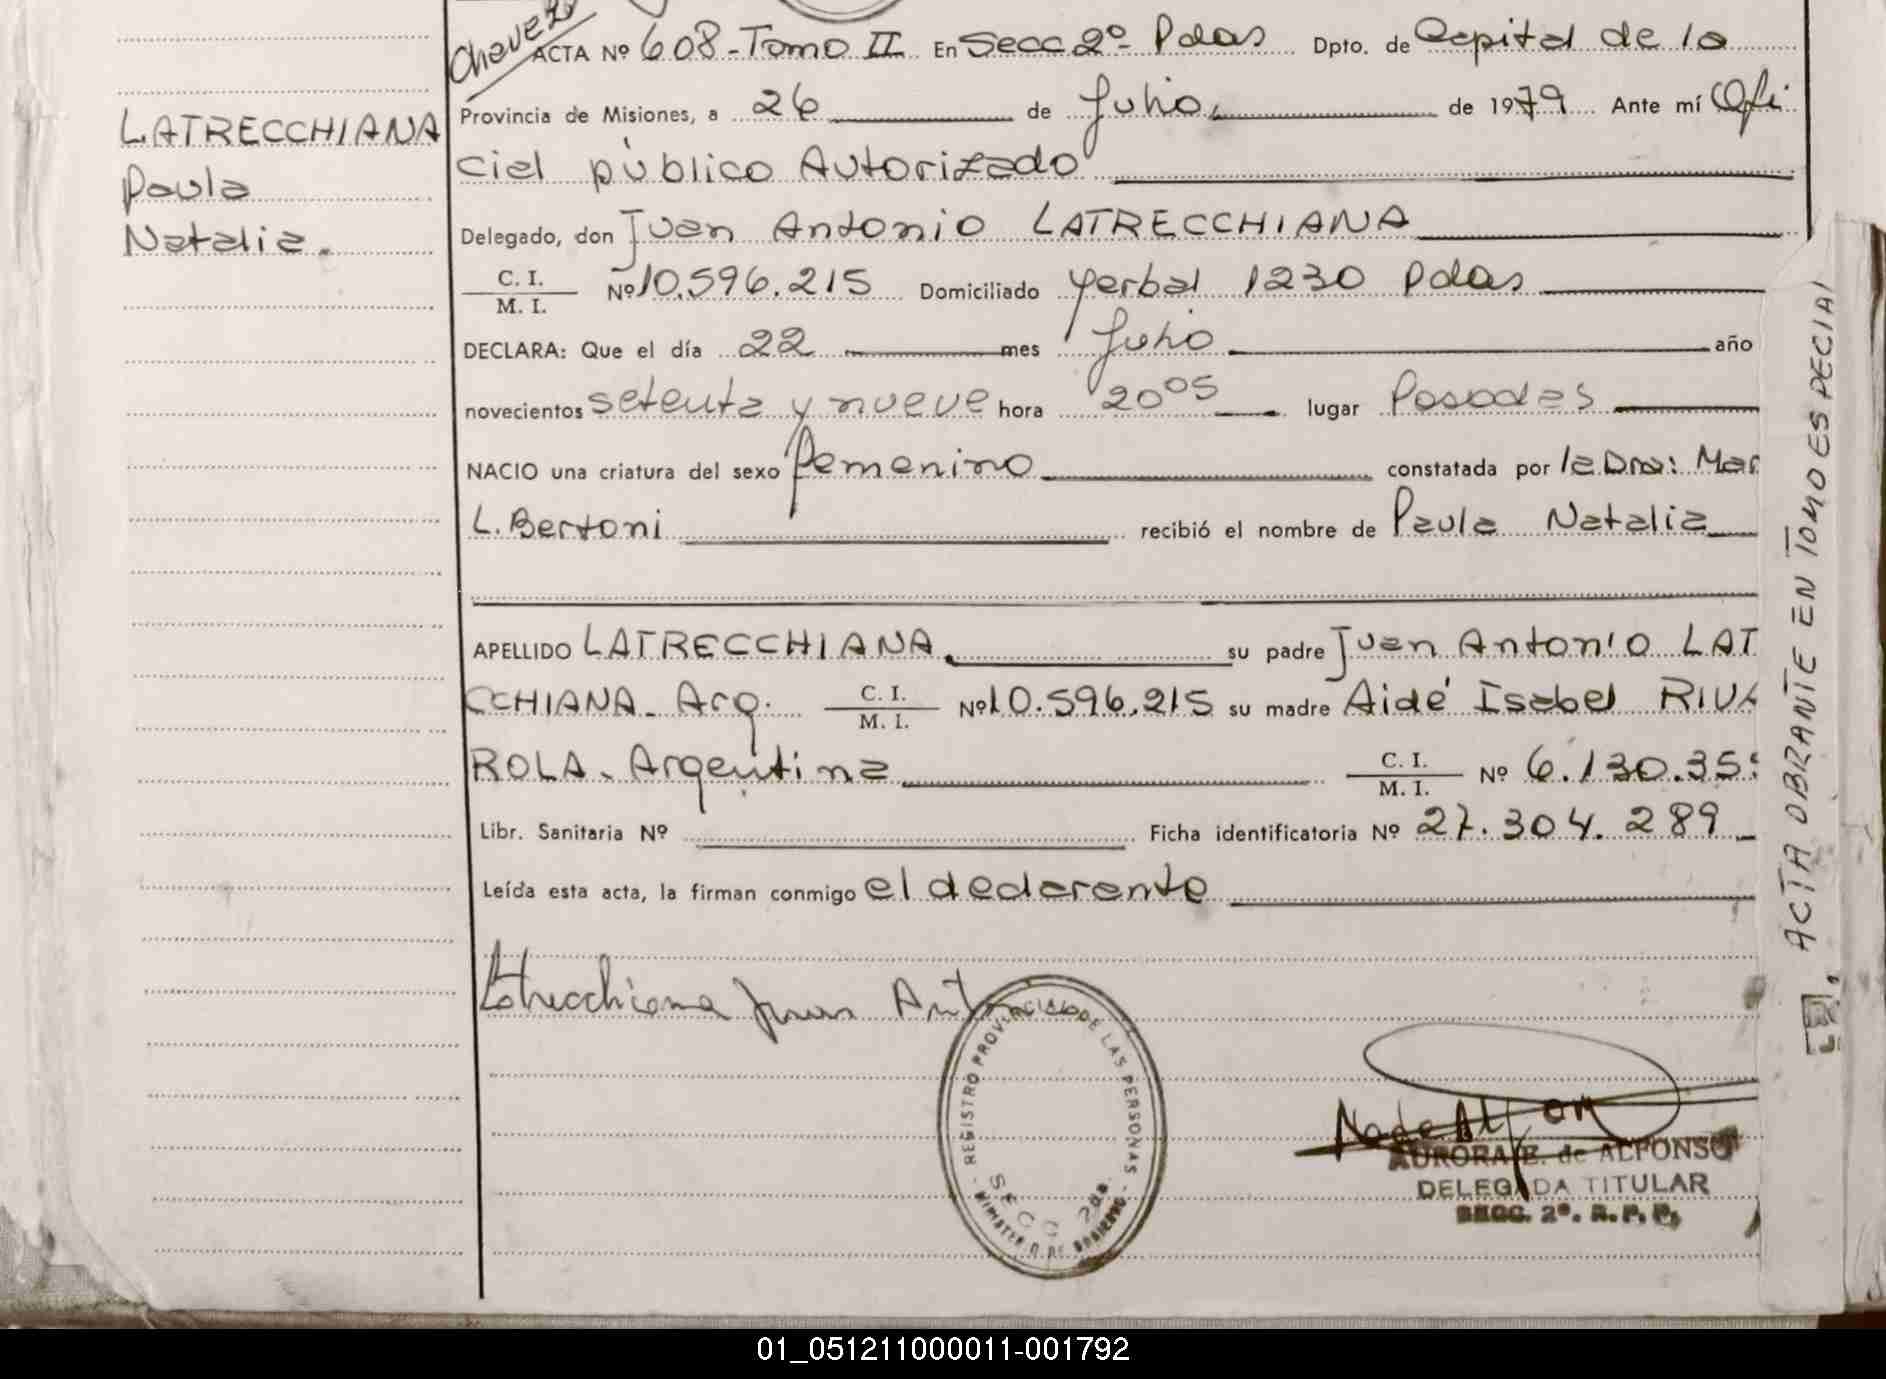 Chavez
ACTA Nº 608 - Tomo II En Secc 2º Pdas Dpto. de Capital de la
Provincia de Misiones, a 26 de Julio, de 1979 Ante mí Ofi
cial público Autorizado
LATRECCHIANA
Paula
Natalia.
Delegado, don Juan Antonio LATRECCHIANA
C. I.
M. I.
Nº 10.596.215 Domiciliado Yerbal 1230 Pdas
DECLARA: Que el día 22 mes Julio año
novecientos setenta y nueve hora 20 05 lugar Posadas
NACIO una criatura del sexo femenino constatada por la Dra: Mar
L. Bertoni recibió el nombre de Paula Natalia
APELLIDO LATRECCHIANA su padre Juan Antonio LAT
CCHIANA - Arg. C. I. M. I. Nº 10.596.215 su madre Aidé Isabel RIVA
ROLA - Argentina C. I. M. I. Nº 6.130.35
Libr. Sanitaria Nº Ficha identificatoria Nº 27.304.289
Leída esta acta, la firman conmigo el declarante
Latrecchiana Juan Ant
REGISTRO PROVINCIAL DE LAS PERSONAS
SECC. 2da.
MINISTERIO DE GOBIERNO
AURORA E. de ALFONSO
DELEGADA TITULAR
SECC. 2ª. R. P. P.
ACTA OBRANTE EN TOMO ESPECIAL
01_051211000011-001792